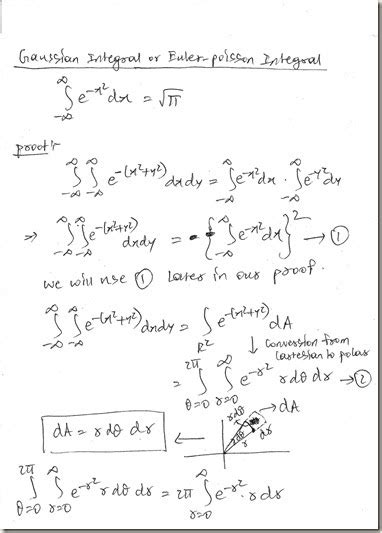 Gaussian Integral or Euler-poisson Integral
∫_{-∞}^{∞} e^{-x²} dx = √π
proof:-
∫_{-∞}^{∞} ∫_{-∞}^{∞} e^{-(x²+y²)} dx dy = ∫_{-∞}^{∞} e^{-x²} dx · ∫_{-∞}^{∞} e^{-y²} dy
⇒ ∫_{-∞}^{∞} ∫_{-∞}^{∞} e^{-(x²+y²)} dx dy = { ∫_{-∞}^{∞} e^{-x²} dx }² → ①
we will use ① later in our proof.
∫_{-∞}^{∞} ∫_{-∞}^{∞} e^{-(x²+y²)} dx dy = ∫_{R²} e^{-(x²+y²)} dA
↓ Conversion from
cartesian to polar
= ∫_{θ=0}^{2π} ∫_{r=0}^{∞} e^{-r²} r dθ dr → ②
dA = r dθ dr
←
rdθ
→ dA
dr
dθ
r
∫_{θ=0}^{2π} ∫_{r=0}^{∞} e^{-r²} r dθ dr = 2π ∫_{r=0}^{∞} e^{-r²} · r dr